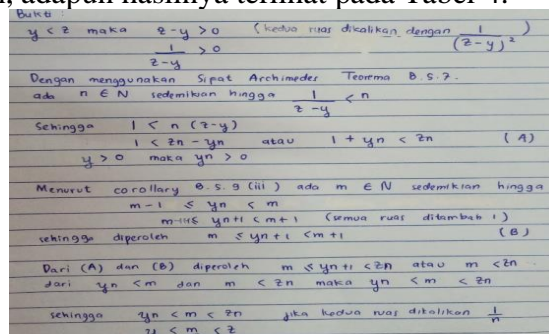 , adapun hasilnya terlihat pada Tabel 4.
Bukti :
y < z maka z - y > 0 (kedua ruas dikalikan dengan 1/(z-y)²)
1/(z-y) > 0
Dengan menggunakan Sipat Archimedes Teorema B.S.7.
ada n ∈ N sedemikian hingga 1/(z-y) < n
Sehingga 1 < n (z-y)
1 < zn - yn atau 1 + yn < zn (A)
y > 0 maka yn > 0
Menurut corollary B.S.9 (iii) ada m ∈ N sedemikian hingga
m-1 ≤ yn < m
m-1+1≤ yn+1 < m+1 (semua ruas ditambah 1)
sehingga diperoleh m ≤ yn+1 < m+1 (B)
Dari (A) dan (B) diperoleh m ≤ yn+1 < zn atau m < zn
dari yn < m dan m < zn maka yn < m < zn
sehingga yn < m < zn jika kedua ruas dikalikan 1/n
y < m < z